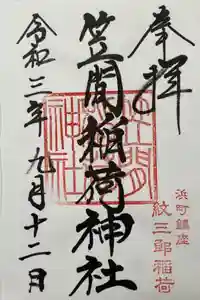 奉拝
浜町鎮座
紋三郎稲荷
笠間稲荷神社
令和三年九月十二日